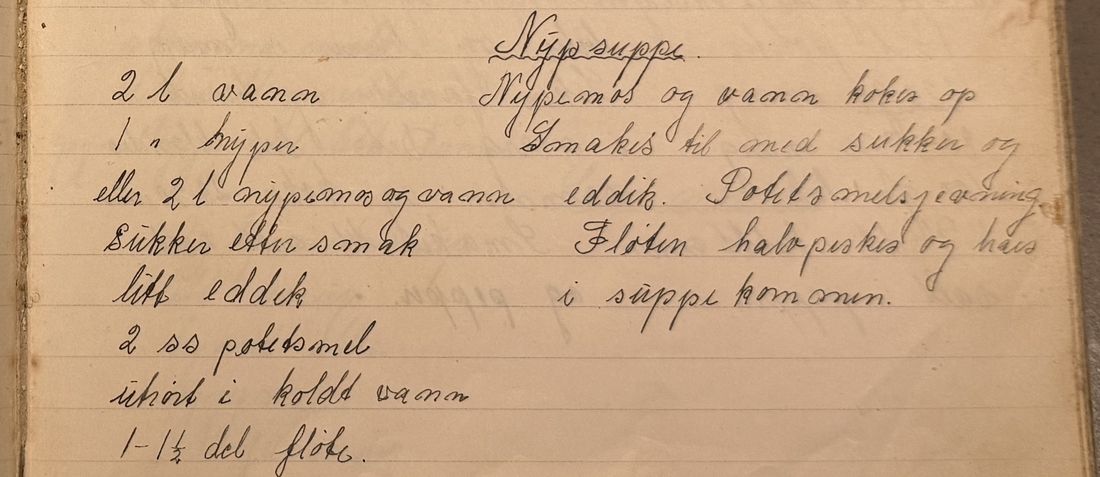 Nypsuppe.
2 l vann
1 " nyper
eller 2 l nypemos og vann
Sukker etter smak
litt eddik
2 ss potetsmel
utrört i koldt vann
1-1½ del fløte.
Nypemos og vann kokes op
Smakes til med sukker og
eddik. Potetsmelsjevning.
Fløten halvpiskes og haes
i suppekommen.